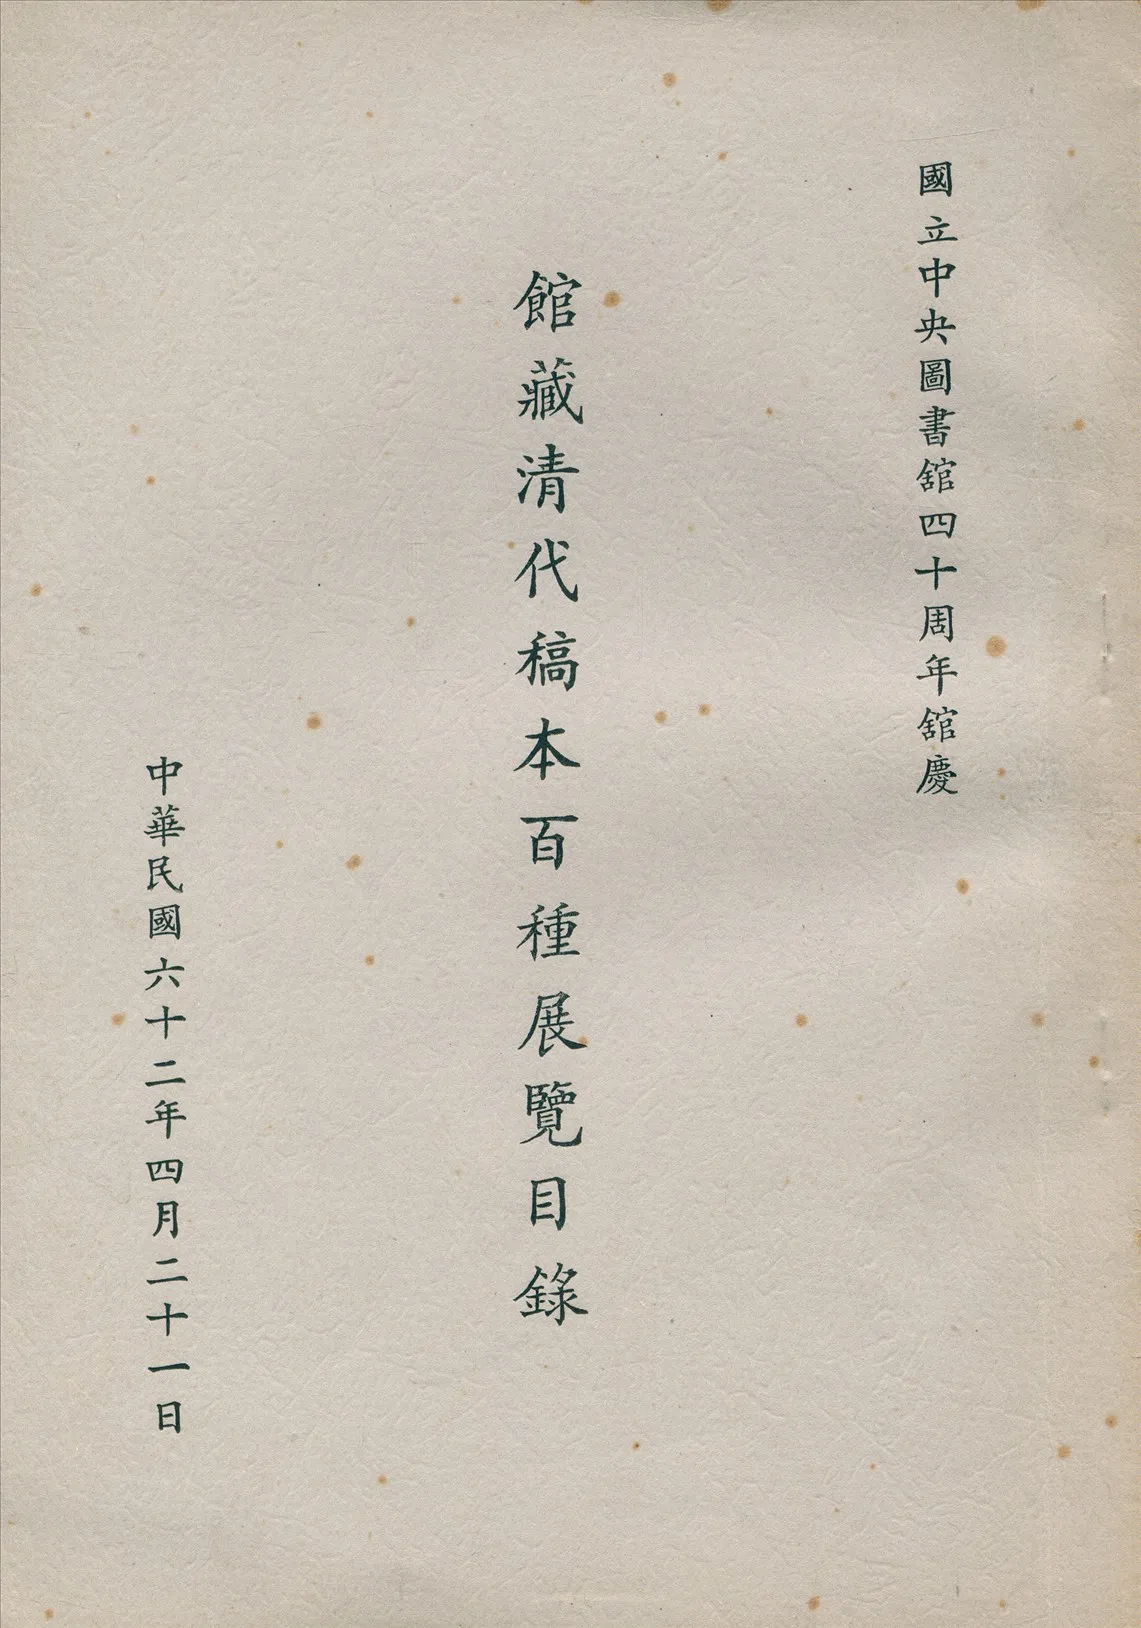 國立中央圖書舘四十周年舘慶
館藏清代稿本百種展覽目錄
中華民國六十二年四月二十一日